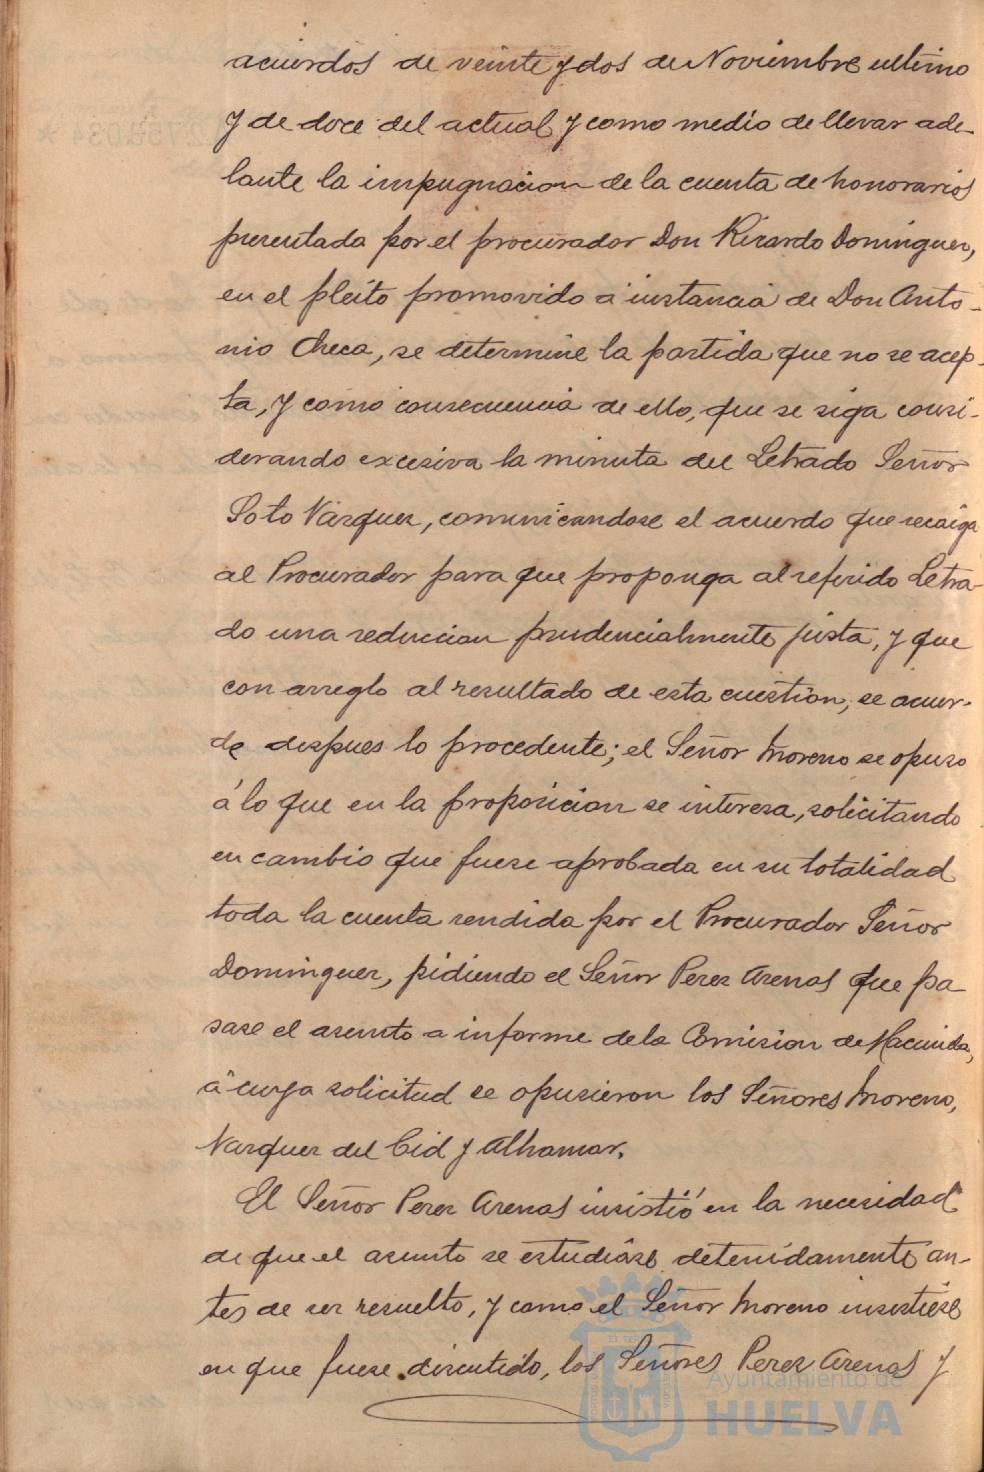 acuerdos de veinte y dos de Noviembre ultimo
y de doce del actual y como medio de llevar ade-
lante la impugnacion de la cuenta de honorarios
presentada por el procurador Don Ricardo Dominguez,
en el pleito promovido á instancia de Don Anto-
nio Checa, se determine la partida que no se acep-
ta, y como consecuencia de ello, que se siga consi-
derando excesiva la minuta del Letrado Señor
Soto Vazquez, comunicandose el acuerdo que recaiga
al Procurador para que proponga al referido Letra-
do una reduccion prudencialmente justa, y que
con arreglo al resultado de esta cuestion, se acuer-
de despues lo procedente; el Señor Moreno se opuso
á lo que en la proposicion se interesa, solicitando
en cambio que fuese aprobada en su totalidad
toda la cuenta rendida por el Procurador Señor
Dominguez, pidiendo el Señor Perez Arenas que pa-
sase el asunto a informe de la Comision de Hacienda,
á cuya solicitud se opusieron los Señores Moreno,
Vazquez del Cid y Alhamar.
El Señor Perez Arenas insistió en la necesidad
de que el asunto se estudiáse detenidamente an-
tes de ser resuelto, y como el Señor Moreno insistiése
en que fuese discutido, los Señores Perez Arenas y
Ayuntamiento de
HUELVA